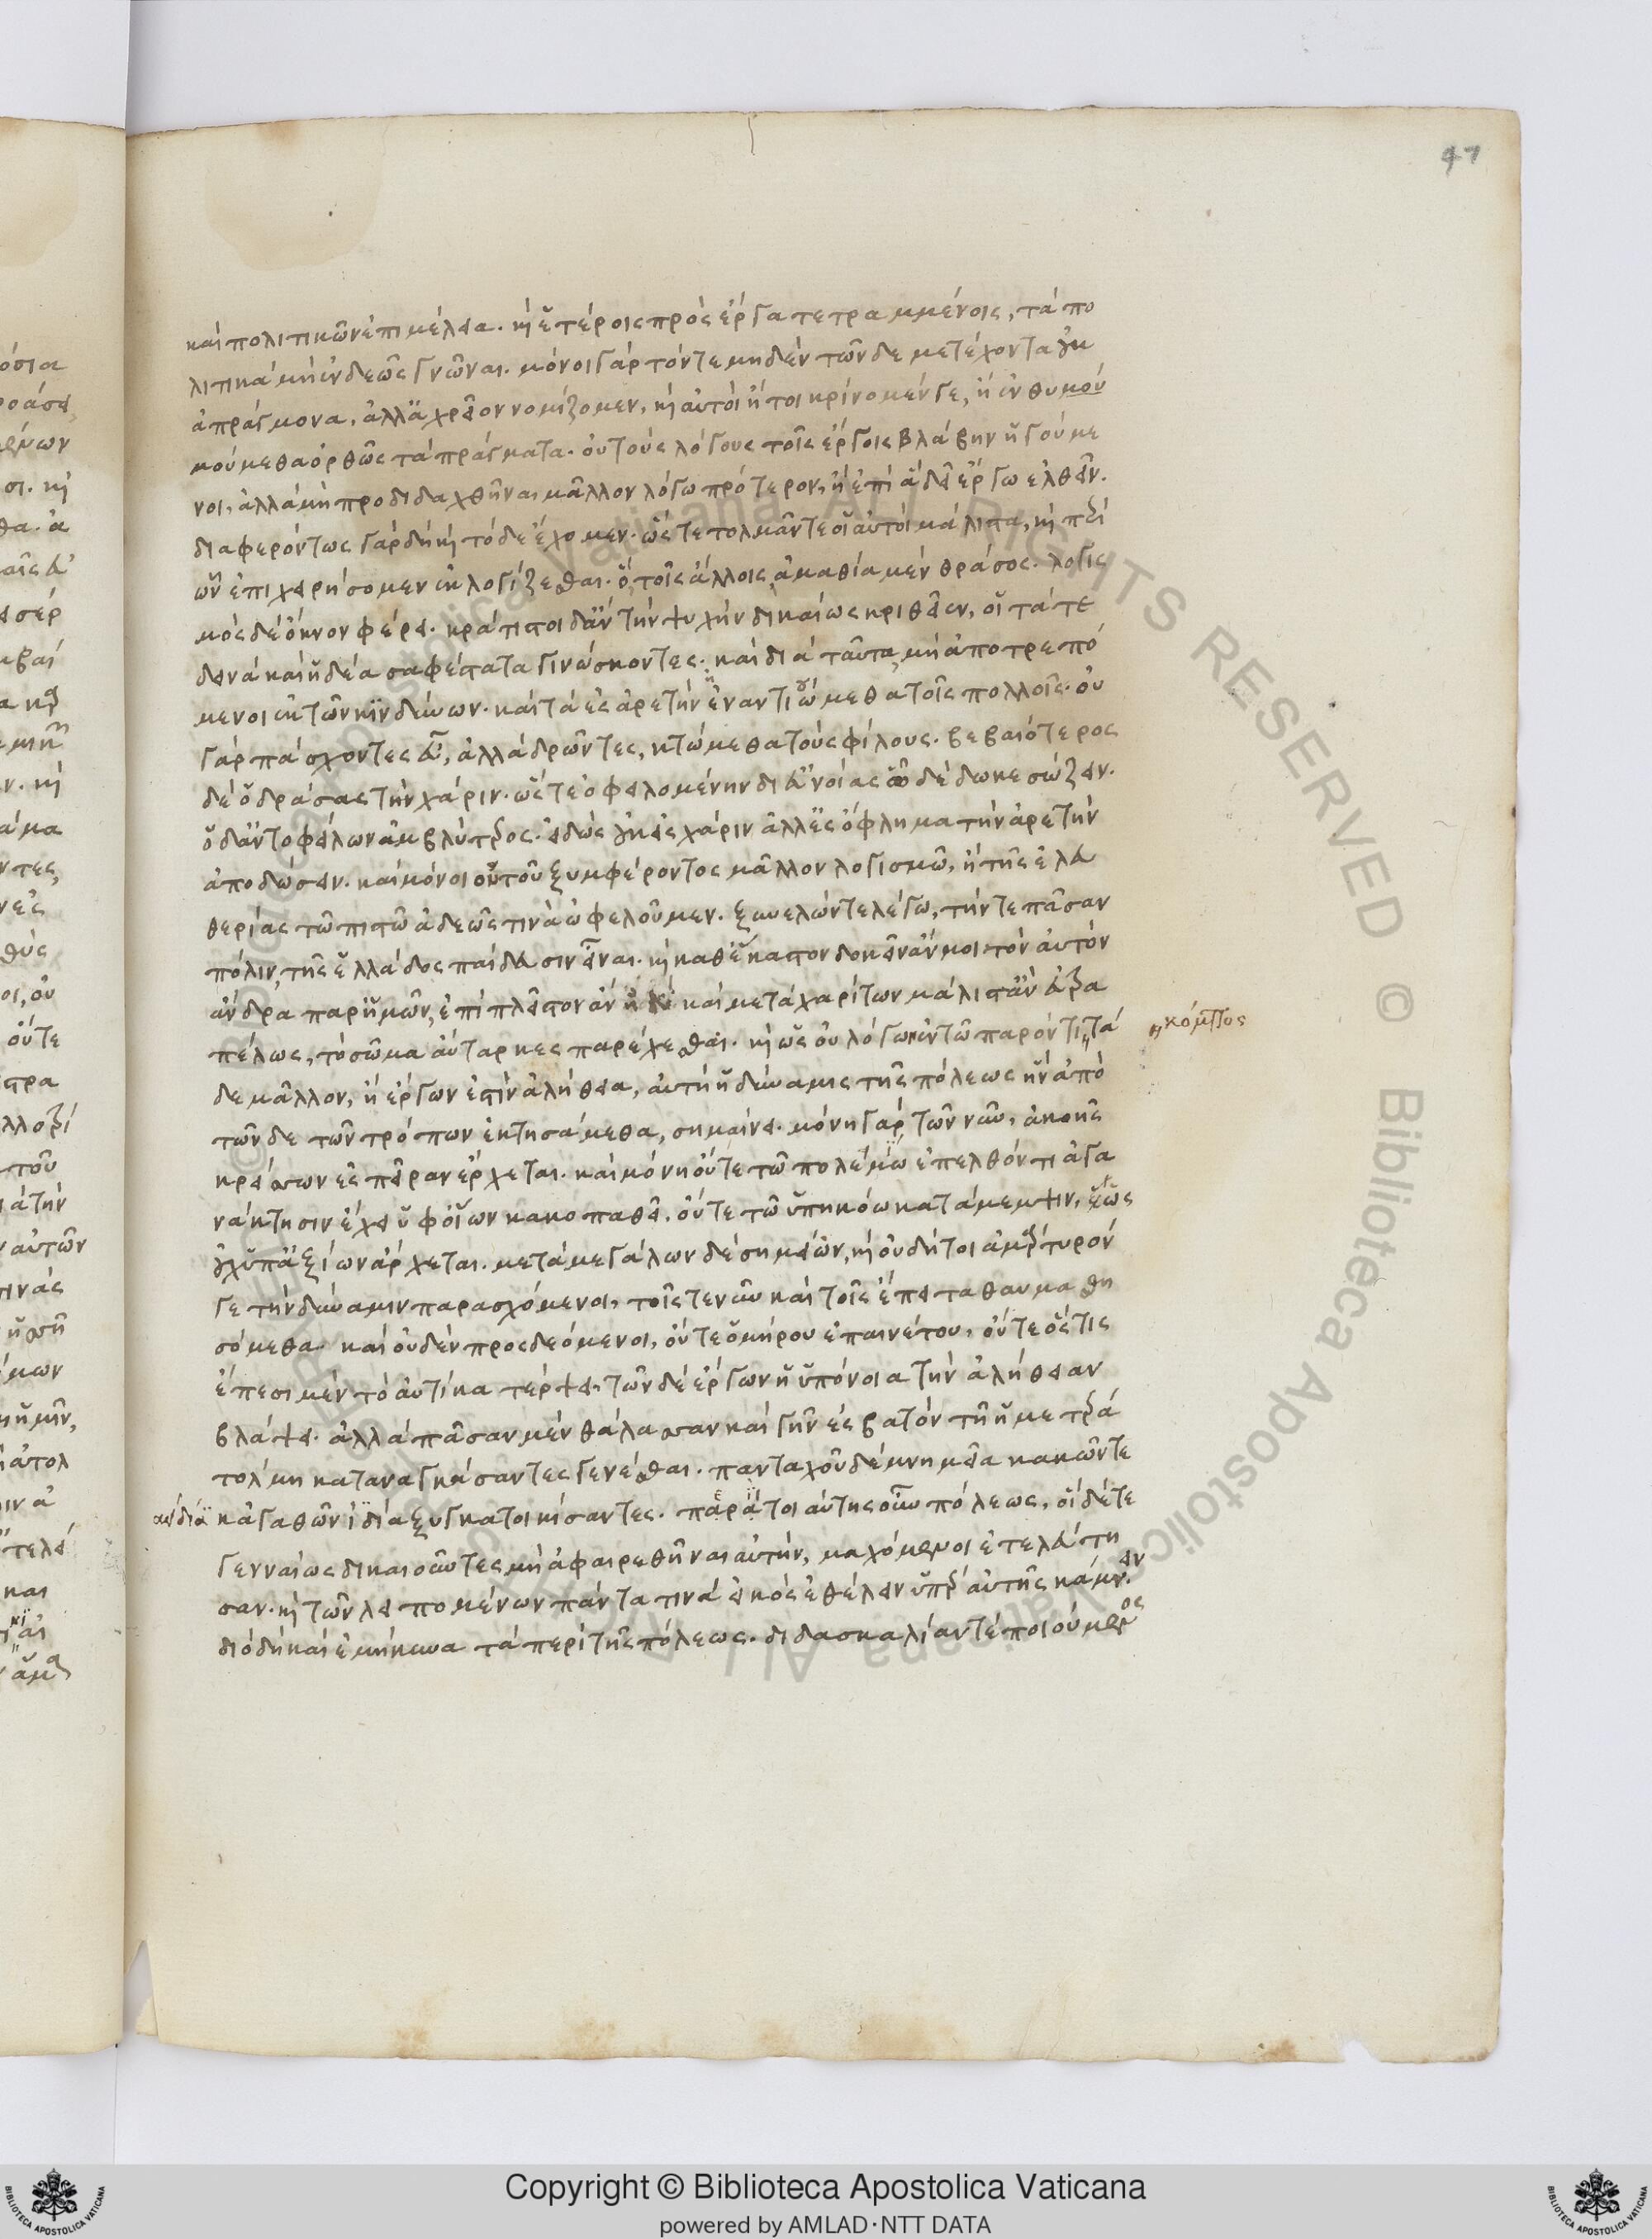 47
καὶ πολιτικῶν ἐπιμέλεια. καὶ ἑτέροις πρὸς ἔργα τετραμμένοις, τὰ πο
λιτικὰ μὴ ἐνδεῶς γνῶναι. μόνοι γὰρ τόν τε μηδὲν τῶνδε μετέχοντα οὐκ
ἀπράγμονα, ἀλλ' ἀχρεῖον νομίζομεν, καὶ αὐτοὶ ἤτοι κρίνομέν γε, ἢ ἐνθυμού
μούμεθα ὀρθῶς τὰ πράγματα. οὐ τοὺς λόγους τοῖς ἔργοις βλάβην ἡγούμε
νοι, ἀλλὰ μὴ προδιδαχθῆναι μᾶλλον λόγω πρότερον, ἢ ἐπὶ ἃ δεῖ ἔργω ἐλθεῖν.
διαφερόντως γὰρ δὴ καὶ τόδε ἔχομεν. ὥστε τολμᾶν τε οἱ αὐτοὶ μάλιστα, καὶ περὶ
ὧν ἐπιχειρήσομεν ἐκλογίζεσθαι. ὃ τοῖς ἄλλοις ἀμαθία μὲν θράσος. λογις
μὸς δὲ ὄκνον φέρει. κράτιστοι δ' ἂν τὴν ψυχὴν δικαίως κριθεῖεν, οἱ τά τε
δεινὰ καὶ ἡδέα σαφέστατα γινώσκοντες. καὶ διὰ ταῦτα μὴ ἀποτρεπό
μενοι ἐκ τῶν κινδύνων. καὶ τὰ ἐς ἀρετὴν ἐναντιώμεθα τοῖς πολλοῖς. οὐ
γὰρ πάσχοντες εὖ, ἀλλὰ δρῶντες, κτώμεθα τοὺς φίλους. βεβαιότερος
δὲ ὁ δράσας τὴν χάριν. ὥστε ὀφειλομένην δι' εὐνοίας ὧ δέδωκε σώζειν.
ὁ δ' ἀντοφείλων ἀμβλύτερος. εἰδὼς οὐκ εἰς χάριν ἀλλ' ἐς ὀφλημα τὴν ἀρετὴν
ἀποδώσειν. καὶ μόνοι οὐ τοῦ ξυμφέροντος μᾶλλον λογισμῶ, ἢ τῆς ἐλευ
θερίας τῶ πιστῶ ἀδεῶς τινὰ ὠφελοῦμεν. ξυνελών τε λέγω, τήν τε πᾶσαν
πόλιν, τῆς ἑλλάδος παίδευσιν εἶναι. καὶ καθ' ἕκαστον δοκεῖν ἄν μοι τὸν αὐτὸν
ἄνδρα παρ' ἡμῶν, ἐπὶ πλεῖστον ἂν εἴδη καὶ μετὰ χαρίτων μάλιστ' ἂν εὐτρα
πέλως, τὸ σῶμα αὔταρκες παρέχεσθαι. καὶ ὡς οὐ λόγων ἐν τῶ παρόντι τά
κόμπος
δε μᾶλλον, ἢ ἔργων ἐστὶν ἀλήθεια, αὐτὴ ἡ δύναμις τῆς πόλεως ἣν ἀπὸ
τῶνδε τῶν τρόπων ἐκτησάμεθα, σημαίνει. μόνη γὰρ τῶν νῦν, ἀκοῆς
κρείσσων ἐς πεῖραν ἔρχεται. καὶ μόνη οὔτε τῶ πολεμίω ἐπελθόντι ἀγα
νάκτησιν ἔχει ὑφ' οἵων κακοπαθεῖ. οὔτε τῶ ὑπηκόω κατάμεμψιν, ὡς
οὐχ ὑπ' ἀξίων ἄρχεται. μετὰ μεγάλων δὲ σημείων, καὶ οὐ δή τοι ἀμάρτυρόν
γε τὴν δύναμιν παρασχόμενοι, τοῖς τε νῦν καὶ τοῖς ἔπειτα θαυμασθη
σόμεθα. καὶ οὐδὲν προςδεόμενοι, οὔτε ὁμήρου ἐπαινέτου, οὔτε ὅςτις
ἔπεσι μὲν τὸ αὐτίκα τέρψει, τῶν δὲ ἔργων ἡ ὑπόνοια τὴν ἀλήθειαν
βλάψει. ἀλλὰ πᾶσαν μὲν θάλασσαν καὶ γῆν ἐςβατὸν τῆ ἡμετέρα
τόλμη καταναγκάσαντες γενέσθαι. πανταχοῦ δὲ μνημεῖα κακῶν τε
ἀίδια κἀγαθῶν ἰδία ξυγκατοικίσαντες. περὶ τοιαύτης οὖν πόλεως, οἵδε τε
γενναίως δικαιοῦντες μὴ ἀφαιρεθῆναι αὐτὴν, μαχόμενοι ἐτελεύτη
σαν. καὶ τῶν λειπομένων πάντα τινὰ εἰκὸς ἐθέλειν ὑπὲρ αὐτῆς κάμνειν.
διὸ δὴ καὶ ἐμήκυνα τὰ περὶ τῆς πόλεως. διδασκαλίαν τε ποιούμενος
Copyright © Biblioteca Apostolica Vaticana
powered by AMLAD·NTT DATA